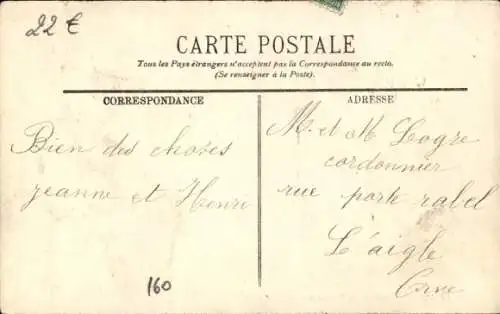 22 €
CARTE POSTALE
Tous les Pays étrangers n'acceptent pas la Correspondance au recto.
(Se renseigner à la Poste).
CORRESPONDANCE
Bien des choses
Jeanne et Henri
160
ADRESSE
M. et M Logre
cordonnier
rue porte rabel
L'aigle
Orne